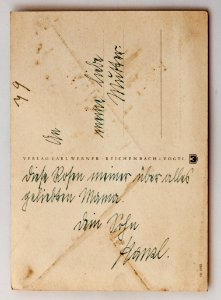 39
An
meine liebe
Mutter.
VERLAG CARL WERNER · REICHENBACH · VOGTL.
Diese Rosen meiner über alles
geliebten Mama.
Dein Sohn